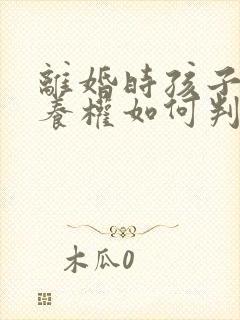 離婚時孩子
養權如何判
木瓜0